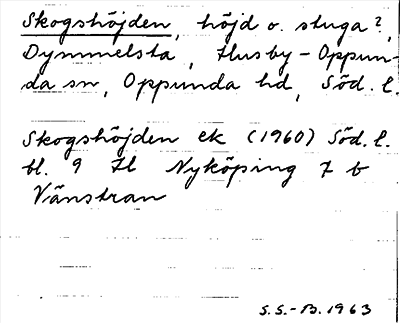 Skogshöjden, höjd o. stuga?,
Dymmelsta, Husby-Oppun-
da sn, Oppunda hd, Söd. l.
Skogshöjden ek (1960) Söd. l.
bl. 9 Il Nyköping 7 b
Vänstran
S.S.-B. 1963